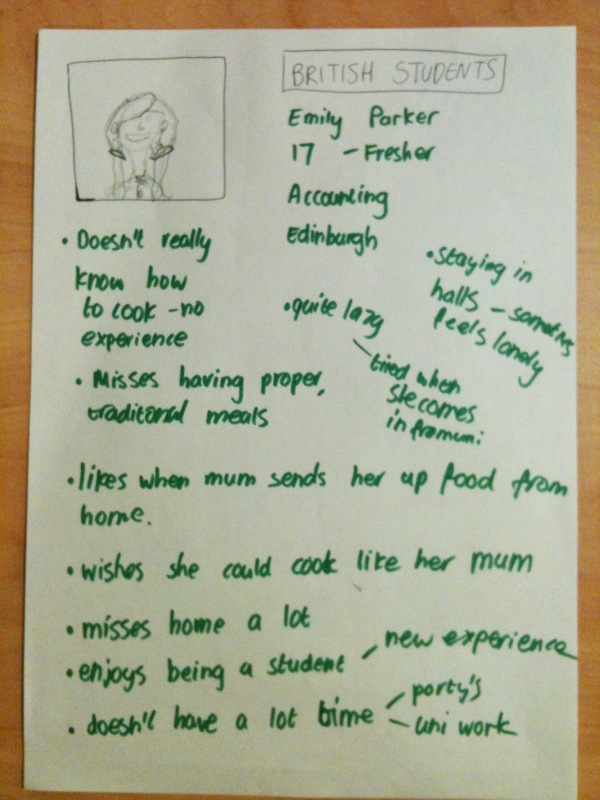 BRITISH STUDENTS
Emily Parker
17 - Fresher
Accounting
Edinburgh
• Doesn't really
know how
to cook - no
experience
• quite lazy
tired when
she comes
in from uni
• staying in
halls - sometimes
feels lonely
• Misses having proper,
traditonal meals
• likes when mum sends her up food from
home.
• wishes she could cook like her mum
• misses home a lot
• enjoys being a student
new experience
• doesn't have a lot time
party's
uni work